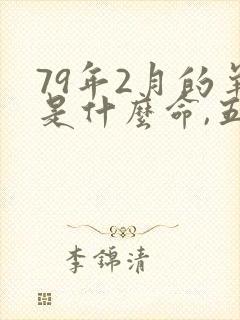 79年2月的羊
是什麼命,五
李錦清